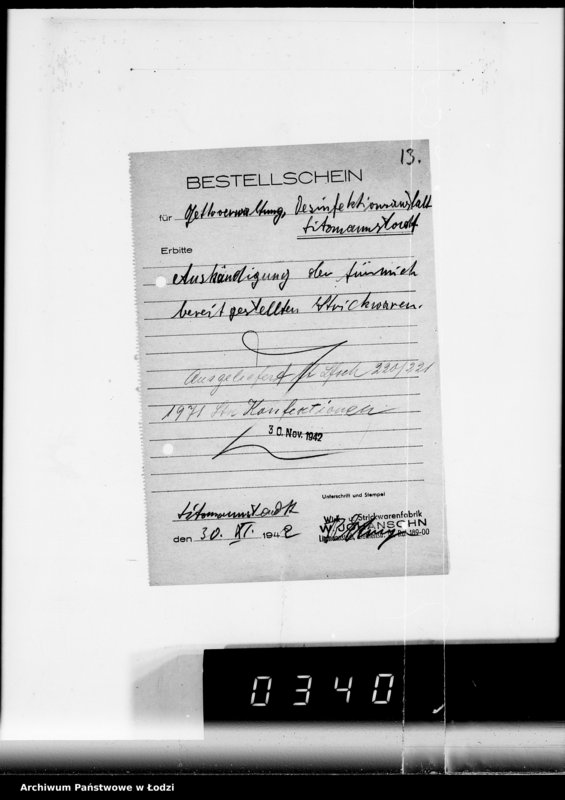 13.
BESTELLSCHEIN
für Gettoverwaltung, Desinfektionsanstalt
Litzmannstadt
Erbitte
Aushändigung der für mich
bereit gestellten Strickwaren.
Ausgeliefert 220/221
1971 Konfektionen
30. Nov. 1942
Unterschrift und Stempel
Litzmannstadt
den 30. XI. 1942
Strickwarenfabrik
189-00
0340
Archiwum Państwowe w Łodzi